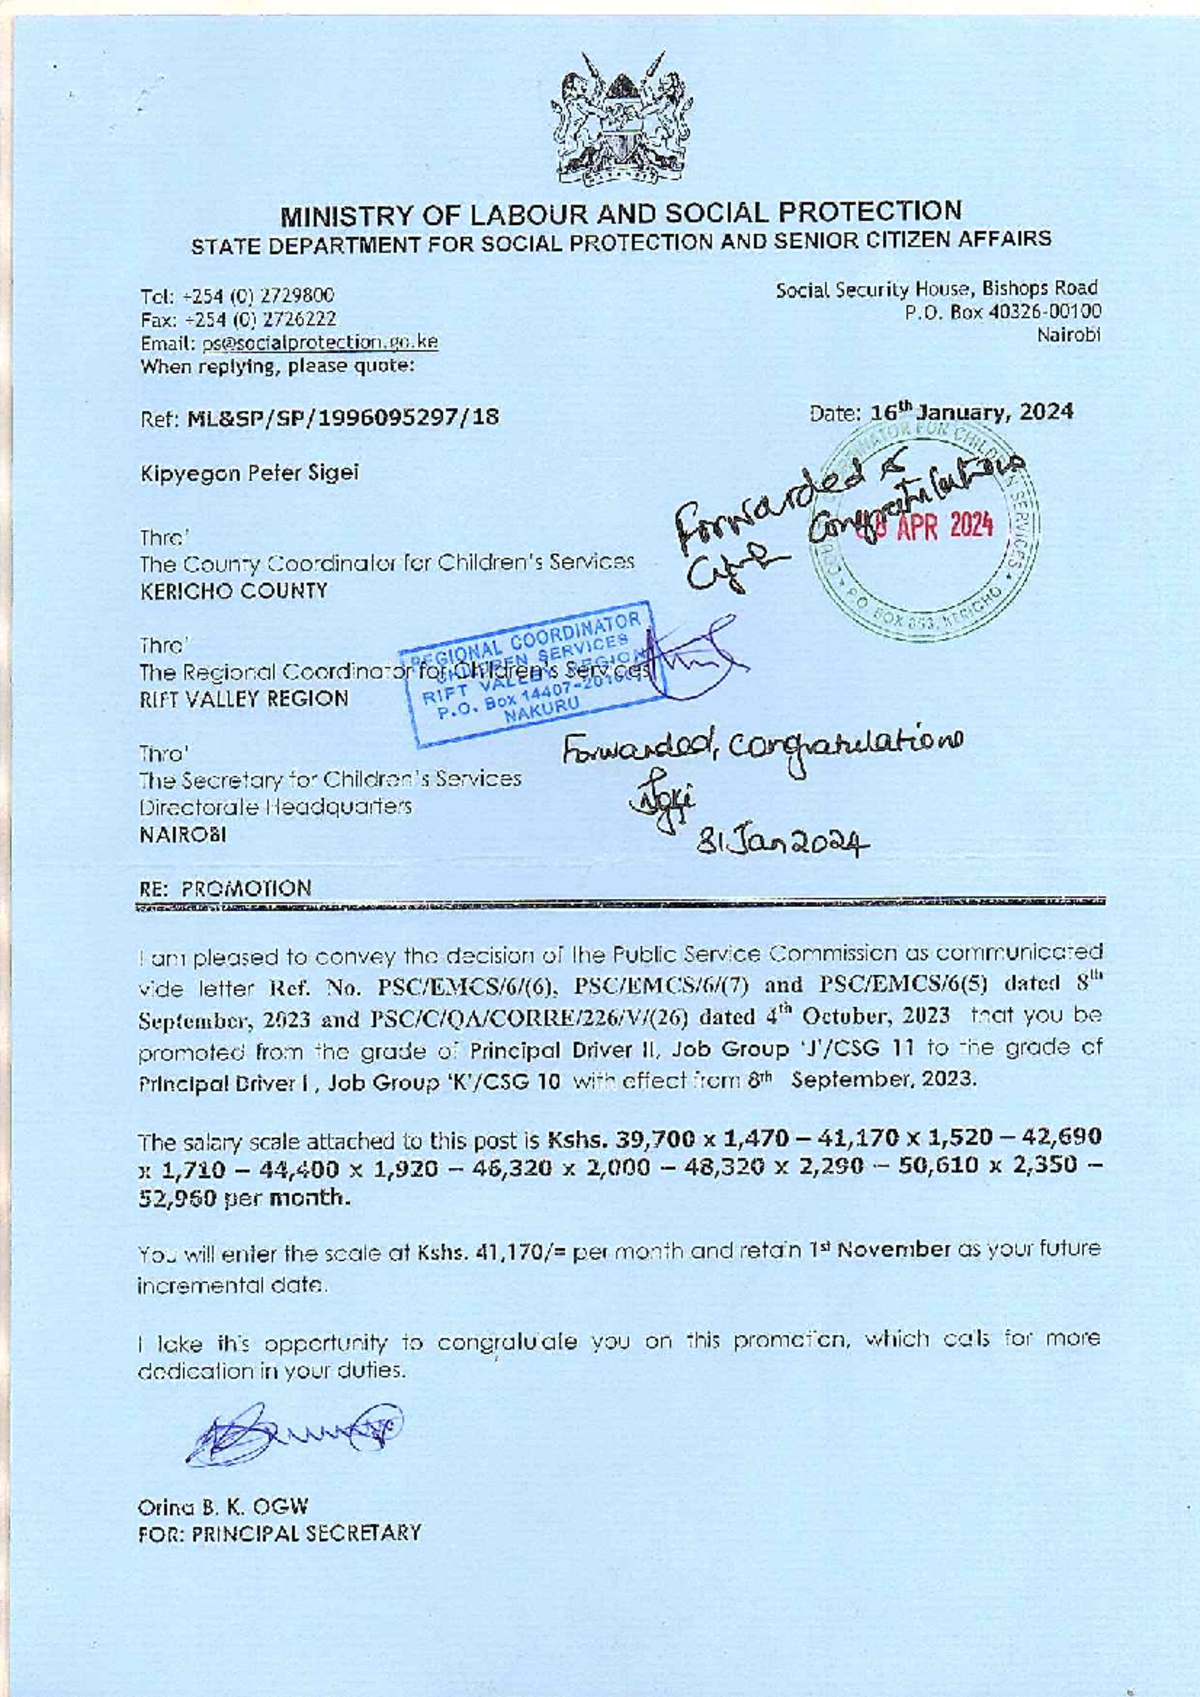 MINISTRY OF LABOUR AND SOCIAL PROTECTION
STATE DEPARTMENT FOR SOCIAL PROTECTION AND SENIOR CITIZEN AFFAIRS
Tel: +254 (0) 2729800
Fax: +254 (0) 2726222
Email: ps@socialprotection.go.ke
When replying, please quote:
Social Security House, Bishops Road
P.O. Box 40326-00100
Nairobi
Ref: ML&SP/SP/1996095297/18
Date: 16th January, 2024
Kipyegon Peter Sigei
Forwarded &
Congratulations
APR 2024
P.O. BOX 853, KERICHO
Thro'
The County Coordinator for Children's Services
KERICHO COUNTY
Thro'
The Regional Coordinator for Children's Services
RIFT VALLEY REGION
REGIONAL COORDINATOR
CHILDREN SERVICES
RIFT VALLEY REGION
P.O. Box 14407-20100
NAKURU
Forwarded, congratulations
31 Jan 2024
Thro'
The Secretary for Children's Services
Directorate Headquarters
NAIROBI
RE: PROMOTION
I am pleased to convey the decision of the Public Service Commission as communicated
vide letter Ref. No. PSC/EMCS/6/(6), PSC/EMCS/6/(7) and PSC/EMCS/6(5) dated 8th
September, 2023 and PSC/C/QA/CORRE/226/V/(26) dated 4th October, 2023 that you be
promoted from the grade of Principal Driver II, Job Group 'J'/CSG 11 to the grade of
Principal Driver I , Job Group 'K'/CSG 10 with effect from 8th September, 2023.
The salary scale attached to this post is Kshs. 39,700 x 1,470 – 41,170 x 1,520 – 42,690
x 1,710 – 44,400 x 1,920 – 46,320 x 2,000 – 48,320 x 2,290 – 50,610 x 2,350 –
52,960 per month.
You will enter the scale at Kshs. 41,170/= per month and retain 1st November as your future
incremental date.
I take this opportunity to congratulate you on this promotion, which calls for more
dedication in your duties.
Orina B. K. OGW
FOR: PRINCIPAL SECRETARY